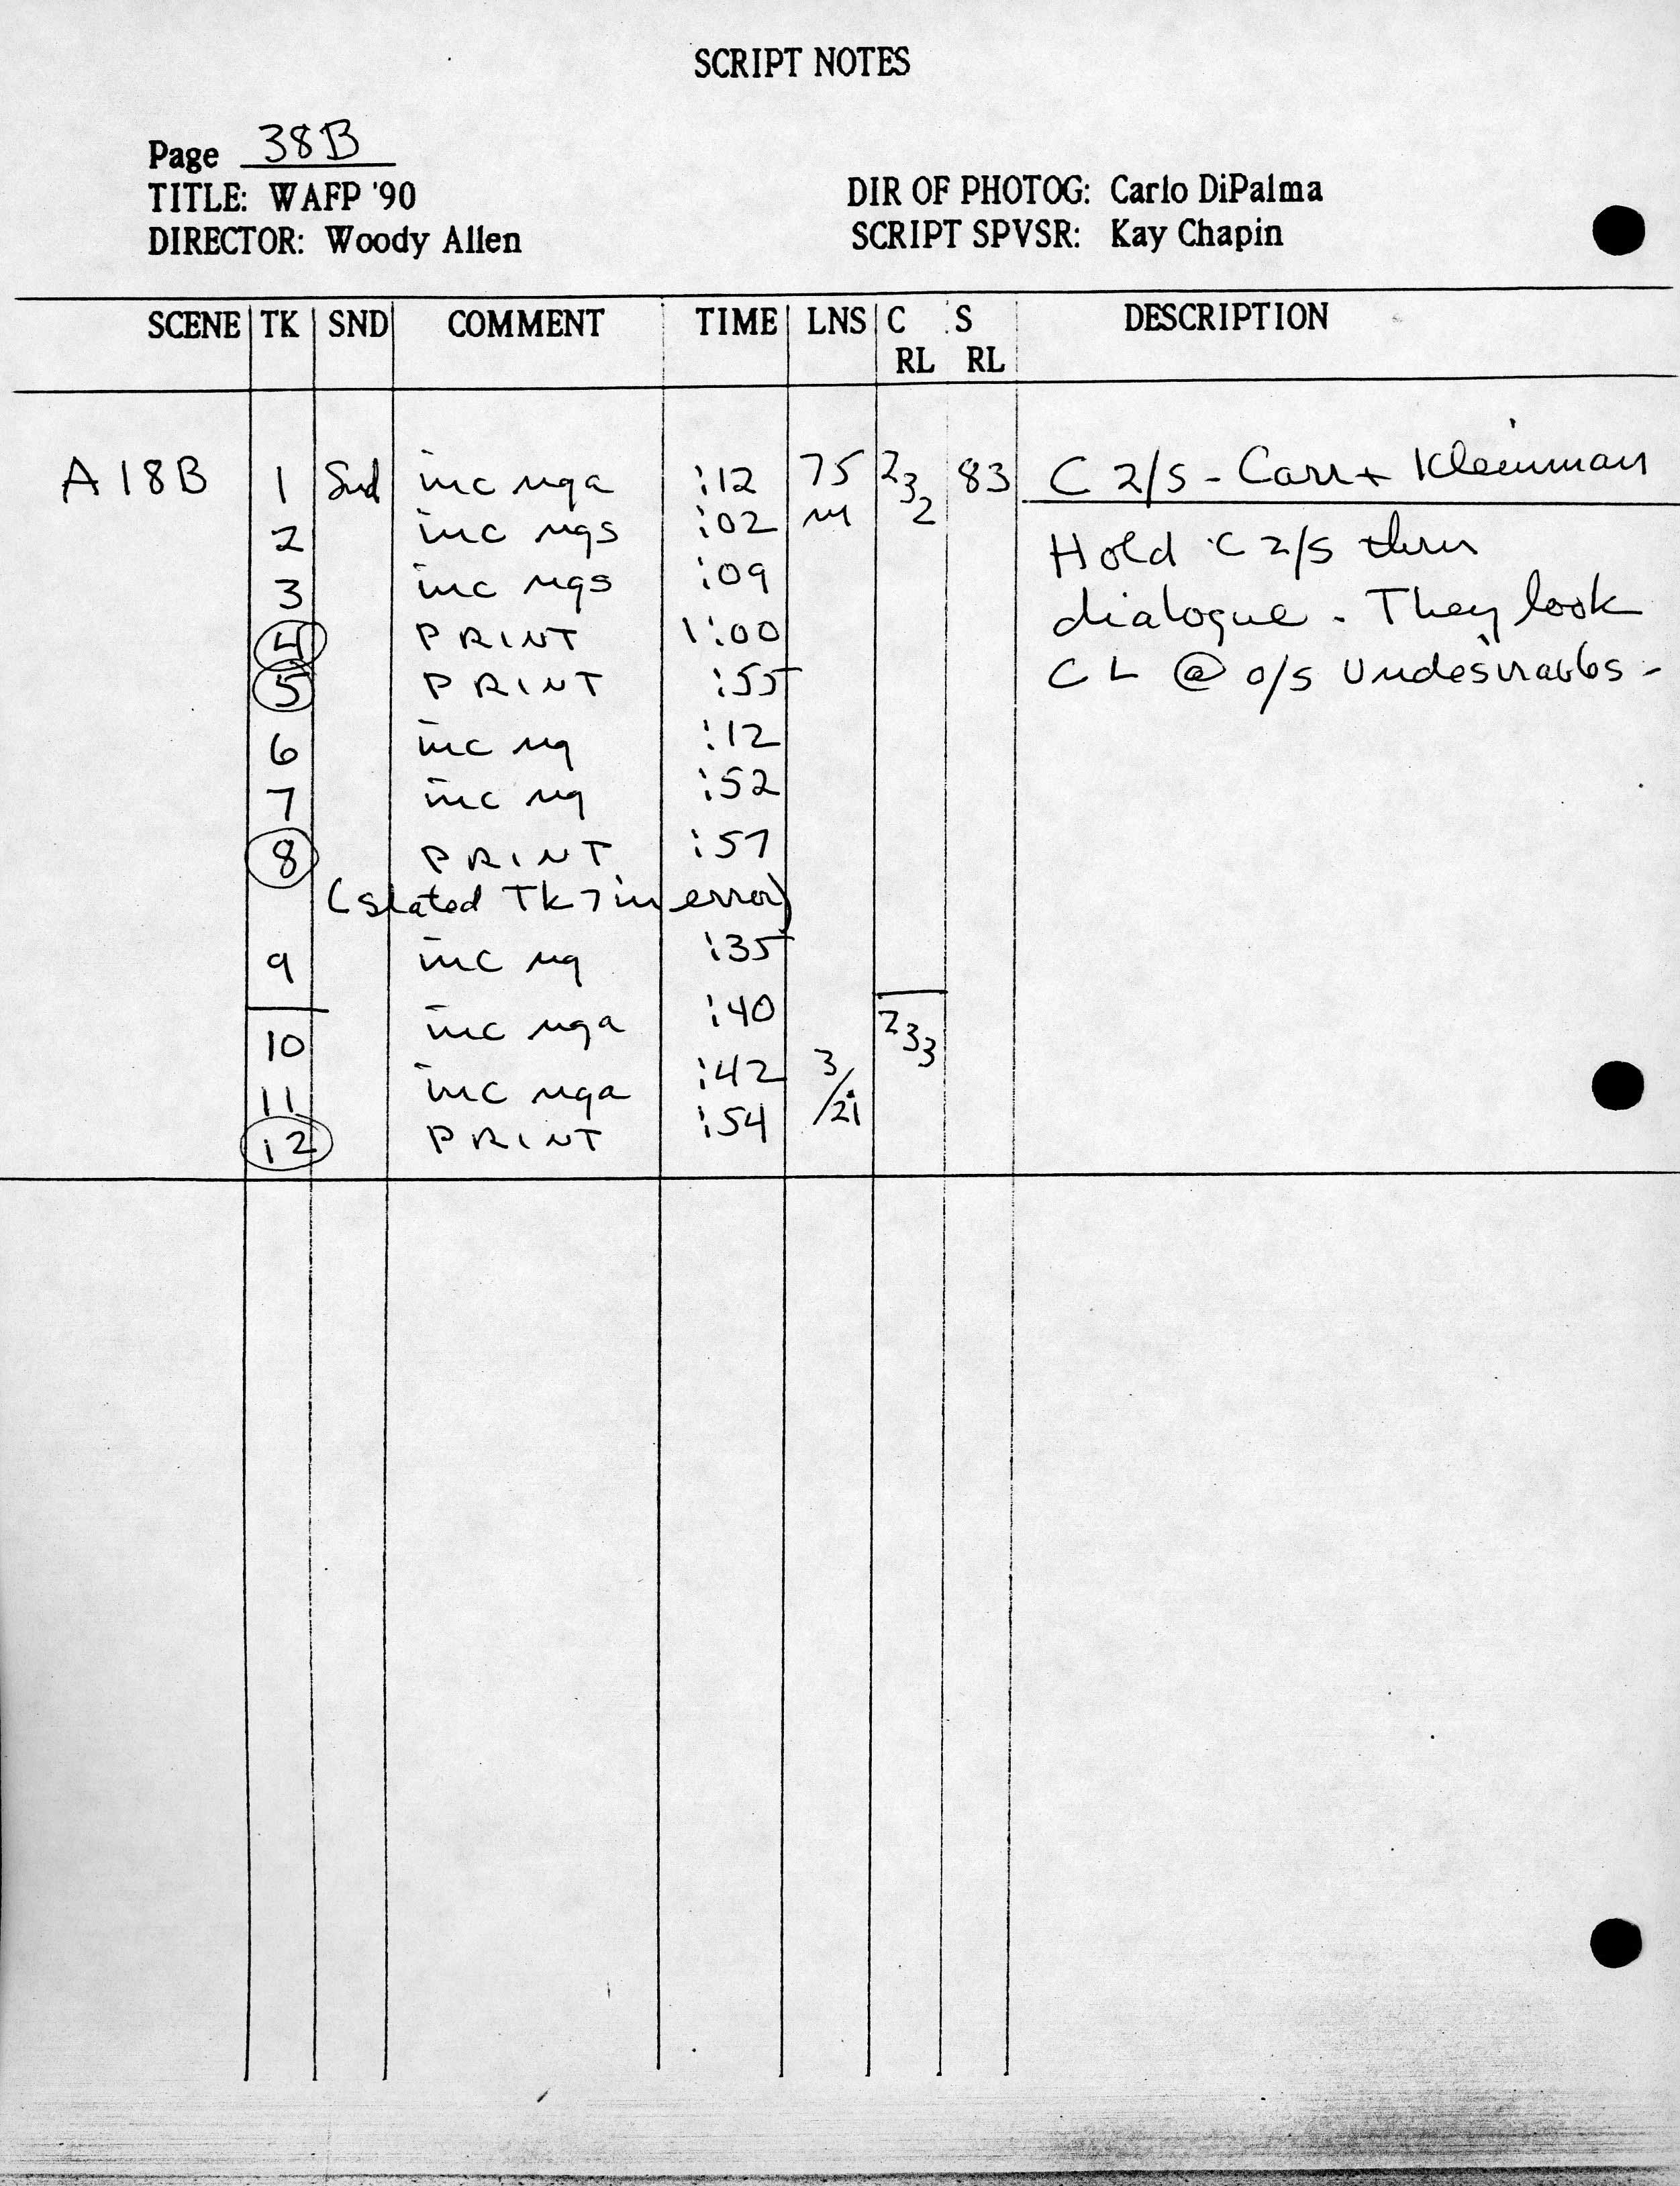 SCRIPT NOTES
Page 38B
TITLE: WAFP '90
DIRECTOR: Woody Allen
DIR OF PHOTOG: Carlo DiPalma
SCRIPT SPVSR: Kay Chapin
SCENE TK SND COMMENT TIME LNS C RL S RL DESCRIPTION
A18B 1 Snd inc nga :12 75 232 83 C 2/s - Carr + Kleinman
2 inc ngs :02 M Hold C 2/s thru
3 inc ngs :09 dialogue. They look
4 PRINT 1:00 CL @ o/s Undesirables -
5 PRINT :55
6 inc ng :12
7 inc ng :52
8 PRINT :57
(slated Tk 7 in error)
9 inc ng :35
10 inc nga :40 233
11 inc nga :42 3/21
12 PRINT :54